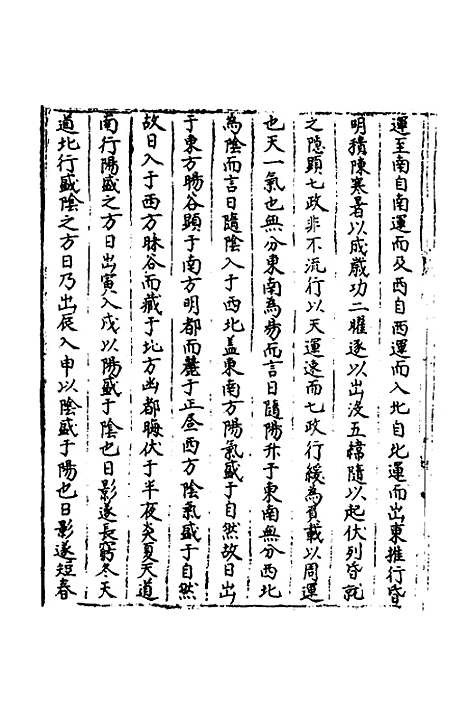 運至南自南運而及西自西運而入北自北運而出東推行昏
明積陳寒暑以成歲功二曜遂以出沒五緯隨以起伏列昏就
之隱顯七政非不流行以天運速而七政行緩為負載以周運
也天一氣也無分東南為昜而言日隨陽升于東南無分西北
為陰而言日隨陰入于西北盖東南方陽氣盛于自然故日出
于東方暘谷顕于南方明都而麗于正昼西方陰氣盛于自然
故日入于西方昧谷而藏于北方幽都晦伏于半夜炎夏天道
南行陽盛之方日出寅入戌以陽盛于陰也日影遂長窮冬天
道北行盛陰之方日乃出辰入申以陰盛于陽也日影遂短春